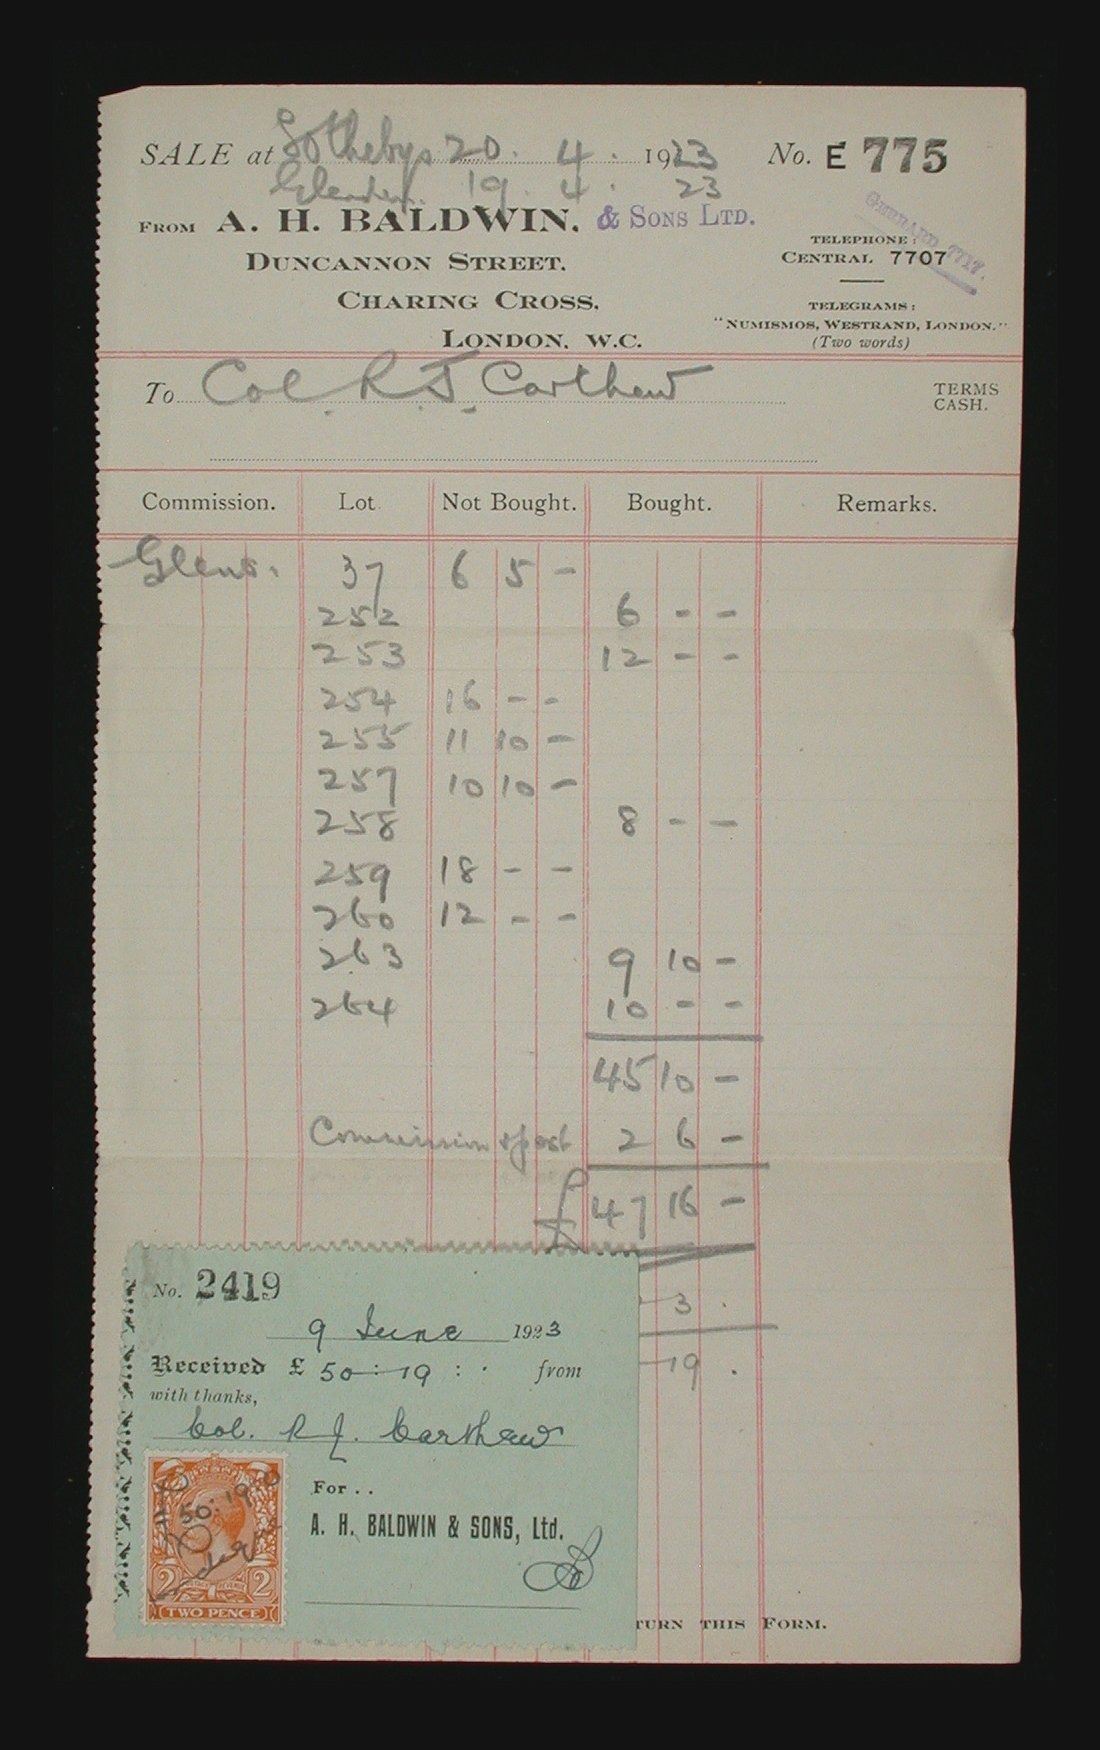 SALE at Sothebys 20. 4. 1923 No. E 775
Glendin. 19. 4. 23
FROM A. H. BALDWIN. & SONS LTD.
GERRARD 7717.
DUNCANNON STREET.
CHARING CROSS.
LONDON. W.C.
TELEPHONE:
CENTRAL 7707
TELEGRAMS:
"NUMISMOS, WESTRAND, LONDON."
(Two words)
To Col. R. J. Carthew
TERMS
CASH.
Commission. Lot Not Bought. Bought. Remarks.
Glens. 37 6 5 -
252 6 - -
253 12 - -
254 16 - -
255 11 10 -
257 10 10 -
258 8 - -
259 18 - -
260 12 - -
263 9 10 -
264 10 - -
45 10 -
Commission & post 2 6 -
£ 47 16 -
3 .
19 .
No. 2419
9 June 1923
Received £ 50 : 19 : . from
with thanks,
Col. R J. Carthew
For . .
A. H. BALDWIN & SONS, Ltd.
50:19
2 2
TWO PENCE
TURN THIS FORM.